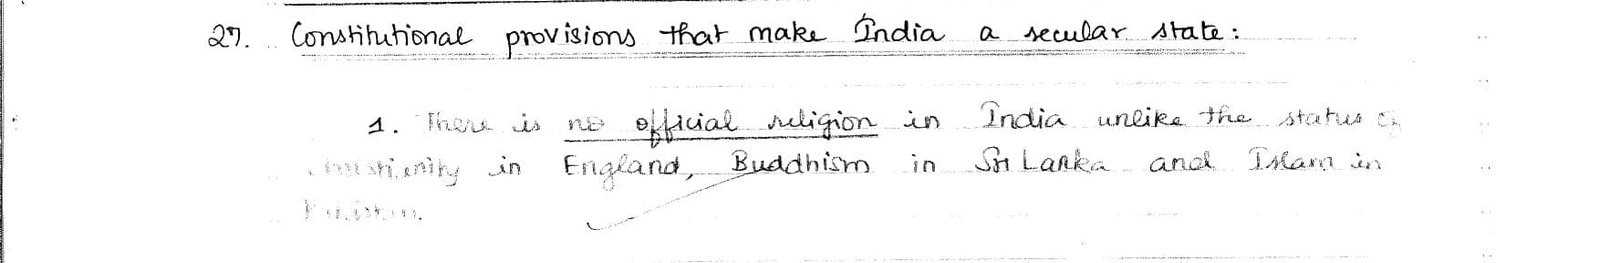 27. Constitutional provisions that make India a secular state:
1. There is no official religion in India unlike the status of
Christianity in England, Buddhism in Sri Lanka and Islam in
Pakistan.